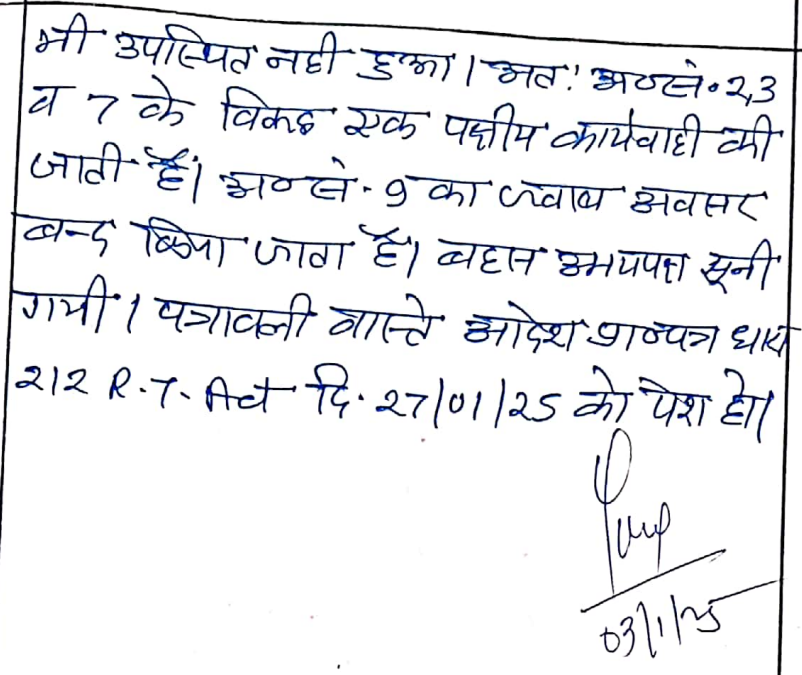 भी उपस्थित नही हुआ। अतः अ०सं० 2,3
व 7 के विरूद्ध एक पक्षीय कार्यवाही की
जाती है। अ०सं. 9 का जवाब अवसर
बन्द किया जाता है। बहस उभयपक्ष सूनी
गयी। पत्रावली वास्ते आदेश प्रा०पत्र धारा
212 R.T. Act दि. 27/01/25 को पेश हो।
03/1/25